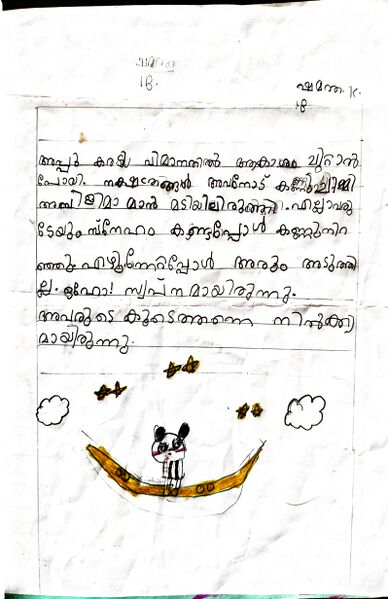 ഷമന്ത
1B.
ഷമന്ത. K
1B
അപ്പു കരടി വിമാനത്തിൽ ആകാശം ചുറ്റാൻ
പോയി. നക്ഷത്രങ്ങൾ അവനോട് കണ്ണുചിമ്മി
അമ്പിളിമാമൻ മടിയിലിരുത്തി. എല്ലാവരു
ടേയും സ്നേഹം കണ്ടപ്പോൾ കണ്ണുനിറ
ഞ്ഞു എഴുന്നേറ്റപ്പോൾ അരും അടുത്തി
ല്ല. ഓഹോ! സ്വപ്നമായിരുന്നു.
അവരുടെ കൂടെത്തന്നെ നിന്നുക്കു
മായിരുന്നു.